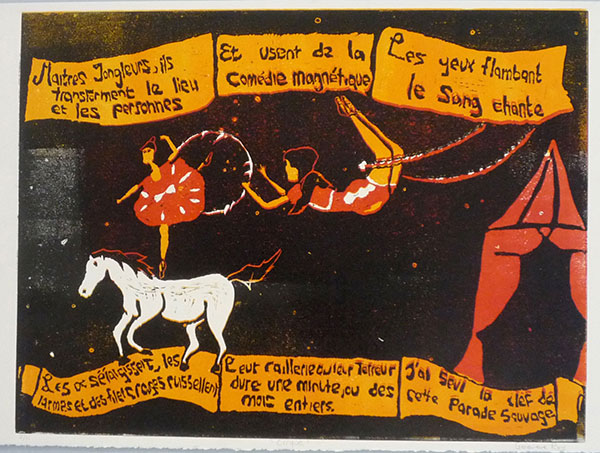 Maitres Jongleurs, ils
transforment le lieu
et les personnes
Et usent de la
Comédie magnétique
Les yeux flambant
le Sang chante
Les os sélargissent, les
larmes et des filets roges ruissellent
Leur raillerie ou leur Terreur
dure une minute, ou des
mois entiers.
J'ai seul la clef de
cette Parade Sauvage